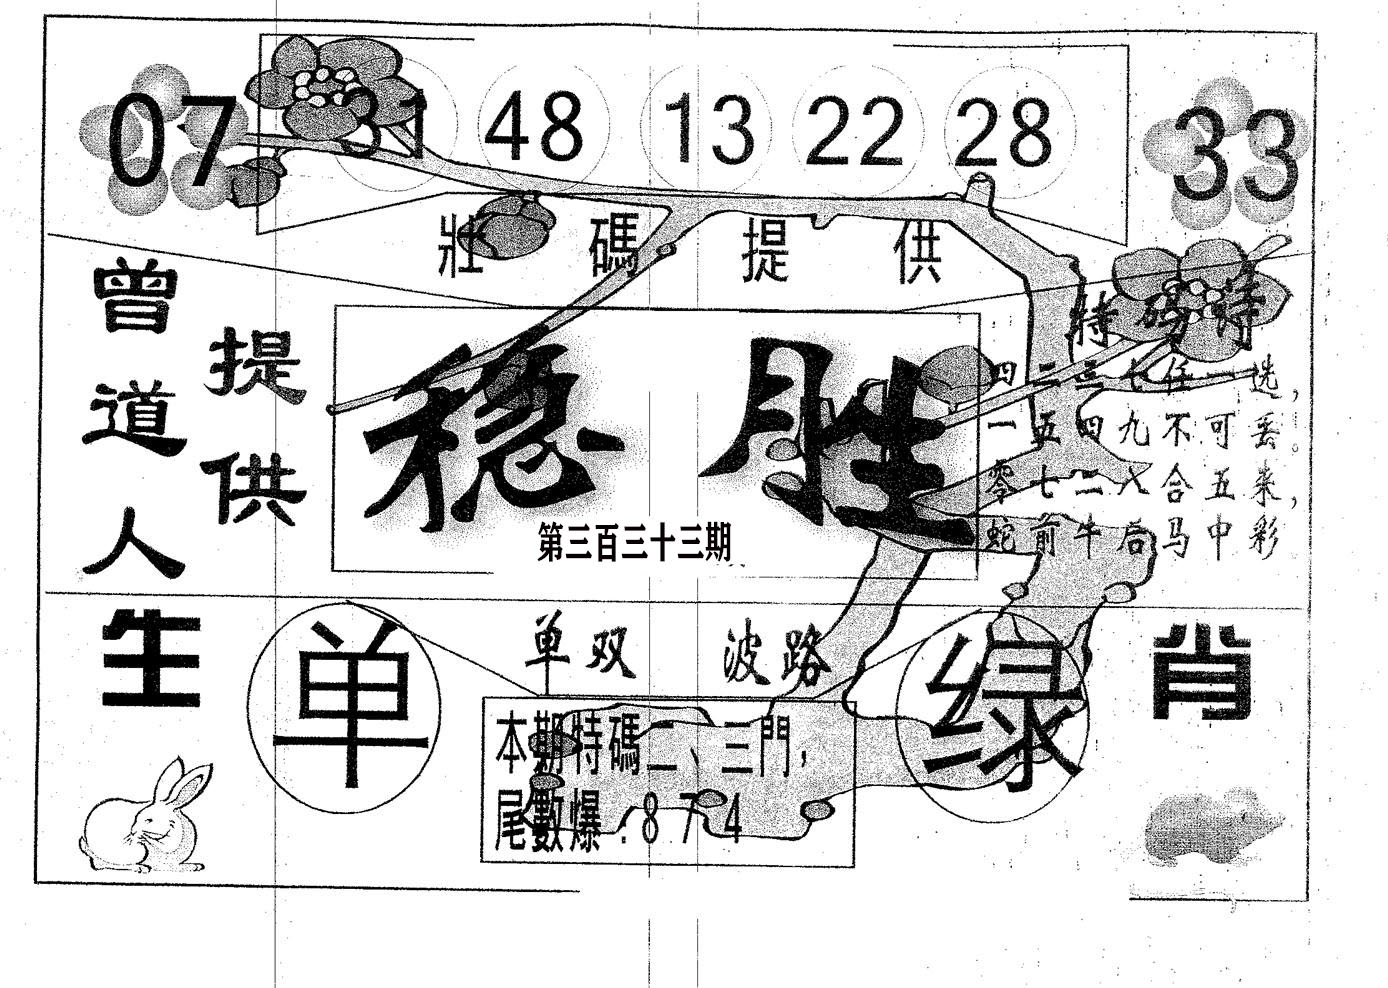 07 31 48 13 22 28 33
壯碼提供
曾道人
提供
稳胜
第三百三十三期
特碼诗
四二三七任一选，
一五四九不可丢。
零七二八合五来，
蛇前牛后马中彩
生肖
单双 波路
单
绿
本期特碼二、三門，
尾數爆：874